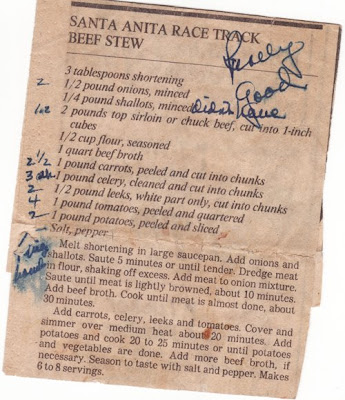 SANTA ANITA RACE TRACK
BEEF STEW
Really
Good
3 tablespoons shortening
2 1/2 pound onions, minced
1/4 pound shallots, minced Didn't have
2 pounds top sirloin or chuck beef, cut into 1-inch
cubes
1/2 cup flour, seasoned
1 quart beef broth
2 1/2 1 pound carrots, peeled and cut into chunks
3 1 pound celery, cleaned and cut into chunks
2 1/2 pound leeks, white part only, cut into chunks
4 1 pound tomatoes, peeled and quartered
2 1 pound potatoes, peeled and sliced
Salt, pepper
Melt shortening in large saucepan. Add onions and
shallots. Saute 5 minutes or until tender. Dredge meat
in flour, shaking off excess. Add meat to onion mixture.
Saute until meat is lightly browned, about 10 minutes.
Add beef broth. Cook until meat is almost done, about
30 minutes.
Add carrots, celery, leeks and tomatoes. Cover and
simmer over medium heat about 20 minutes. Add
potatoes and cook 20 to 25 minutes or until potatoes
and vegetables are done. Add more beef broth, if
necessary. Season to taste with salt and pepper. Makes
6 to 8 servings.